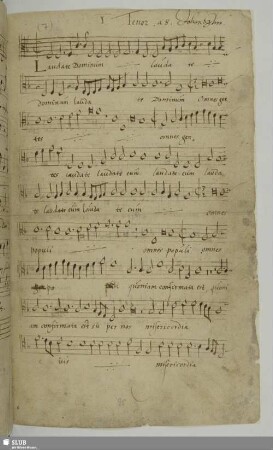 (7) 8 Tenor. a 8.
Laudate Dominum lauda te
Dominum lauda te Dominum omnes gen
tes omnes gen,
tes laudate laudate eum laudate eum lauda,
te laudate eum lauda te eum omnes
populi omnes populi omnes
po quoniam confirmata est, quoni
am confirmata est su per nos misericordia
e ius misericordia
SLUB